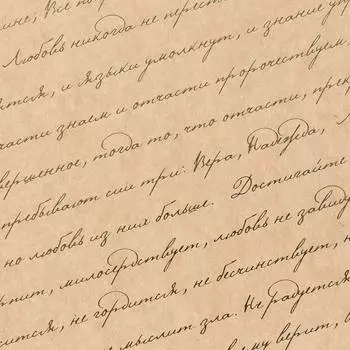 ине; Все по
Любовь никогда не перест
ится, и языки умолкнут, и знание упр
части знаем и отчасти пророчествуем,
вершенное, тогда то, что отчасти, прек
пребывают сии три: Вера, Надежда, Л
но любовь из них больше. Достигайте
рпит, милосердствует, любовь не завиду
сится, не гордится, не бесчинствует, н
мыслит зла. Не радуется
ему верит, в